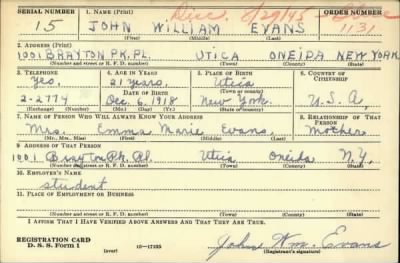 SERIAL NUMBER 1. NAME (Print) ORDER NUMBER
15 JOHN WILLIAM EVANS Disc. 8/29/45 1131
2. ADDRESS (Print)
1001 BRAYTON PK. PL. UTICA ONEIDA NEW YORK
(Number and street or R. F. D. number) (Town) (County) (State)
3. TELEPHONE 4. AGE IN YEARS 5. PLACE OF BIRTH 6. COUNTRY OF CITIZENSHIP
Yes, 21 years, Utica
DATE OF BIRTH (Town or county)
2-2774 Dec. 6, 1918 New York. U.S.A,
(Exchange) (Number) (Mo.) (Day) (Yr.) (State or country)
7. NAME OF PERSON WHO WILL ALWAYS KNOW YOUR ADDRESS 8. RELATIONSHIP OF THAT PERSON
Mrs. Emma Marie Evans, Mother
(Mr., Mrs., Miss) (First) (Middle) (Last)
9. ADDRESS OF THAT PERSON
1001 Brayton Pk. Pl. Utica Oneida N.Y.
(Number and street or R. F. D. number) (Town) (County) (State)
10. EMPLOYER'S NAME
student
11. PLACE OF EMPLOYMENT OR BUSINESS
(Number and street or R. F. D. number) (Town) (County) (State)
I AFFIRM THAT I HAVE VERIFIED ABOVE ANSWERS AND THAT THEY ARE TRUE.
REGISTRATION CARD
D. S. S. FORM 1 (over) 16-17105 John Wm. Evans
(Registrant's signature)